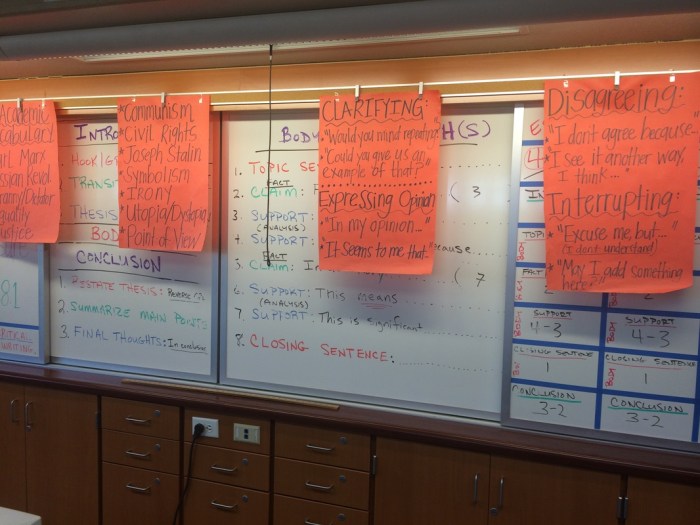 Academic
cabulary
arl Marx
ssian Revol
ranny/Dictator
quality
ustice
*Communism
*Civil Rights
*Joseph Stalin
*Symbolism
*IRONY
*Utopia/Dystopia
*Point of View
CLARIFYING:
*"Would you mind repeating
*"Could you give us an
example of that?"
Expressing Opinion
*"In my opinion..."
*"It seems to me that
Disagreeing:
*"I don't agree because
*"I see it another way,
I think..."
Interrupting:
*"Excuse me but...
(I don't understand)
*"May I add something
here?"
INTRO
HOOK/G
TRANSIT
THESIS
BOD
CONCLUSION
1. RESTATE THESIS:
2. SUMMARIZE MAIN POINTS
3. FINAL THOUGHTS: In conclusion
BODY
H(S)
1. TOPIC SE
FACT
2. CLAIM: F
( 3
3. SUPPORT:
(ANALYSIS)
4. SUPPORT:
cause
FACT
5. CLAIM: In
( 7
6. SUPPORT: This means
(ANALYSIS)
7. SUPPORT: This is significant
8. CLOSING SENTENCE:
81
WRITING.
E
4
IN
TOPIC
FACT
BODY
SUPPORT
4-3
CLOSING SENTENCE
1
CONCLUSION
3-2
BODY
SUPPORT
4-3
CLOSING SENTENCE
BODY
1
CONCLUSION
3-2